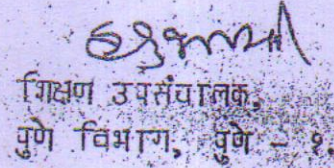 शिक्षण उपसंचालक,
पुणे विभाग, पुणे - १.